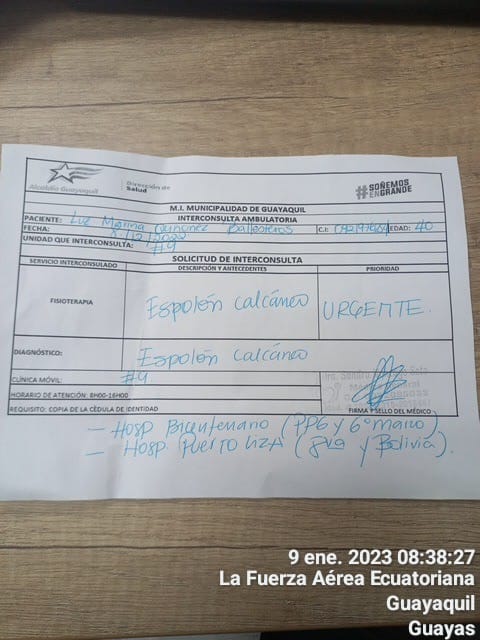 Alcaldía Guayaquil
Dirección de
Salud
#SOÑEMOS
ENGRANDE
M.I. MUNICIPALIDAD DE GUAYAQUIL
INTERCONSULTA AMBULATORIA
PACIENTE: Luz Marina Quiñonez Ballesteros C.I: EDAD: 40
FECHA: 8/12/2022
UNIDAD QUE INTERCONSULTA: #9
SOLICITUD DE INTERCONSULTA
SERVICIO INTERCONSULTADO DESCRIPCIÓN Y ANTECEDENTES PRIORIDAD
FISIOTERAPIA Espolón calcáneo URGENTE.
DIAGNÓSTICO: Espolón calcáneo
CLÍNICA MÓVIL: #9
HORARIO DE ATENCIÓN: 8H00-16H00
REQUISITO: COPIA DE LA CÉDULA DE IDENTIDAD FIRMA Y SELLO DEL MÉDICO
— Hosp Bicentenario (PPG y 6º marzo)
— Hosp. Puerto Liza (8va y Bolivia).
9 ene. 2023 08:38:27
La Fuerza Aérea Ecuatoriana
Guayaquil
Guayas